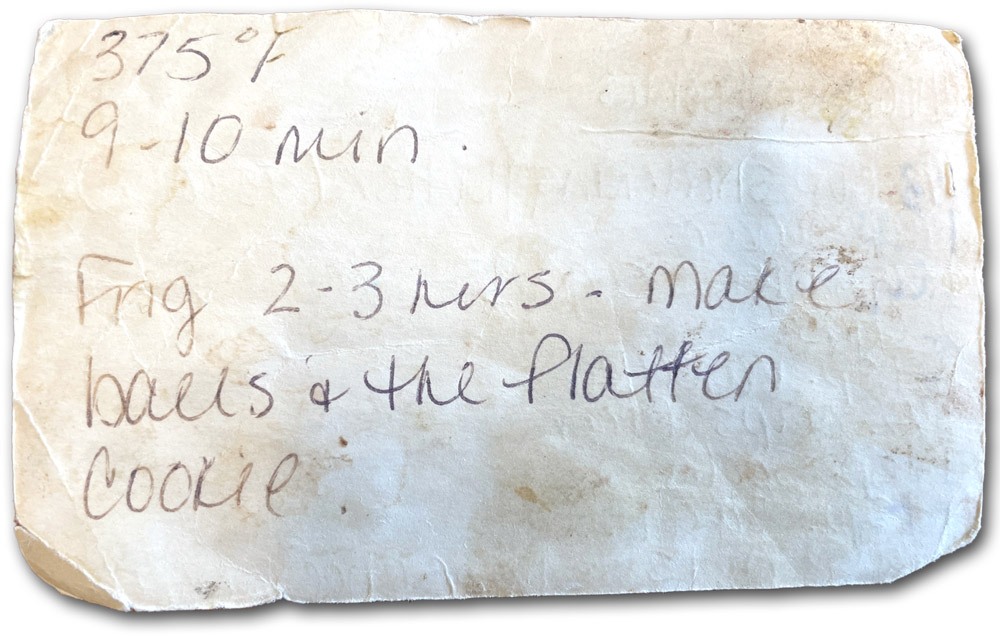 375°F
9-10 min.
Frig 2-3 hurs - make
balls & the flatten
cookie.